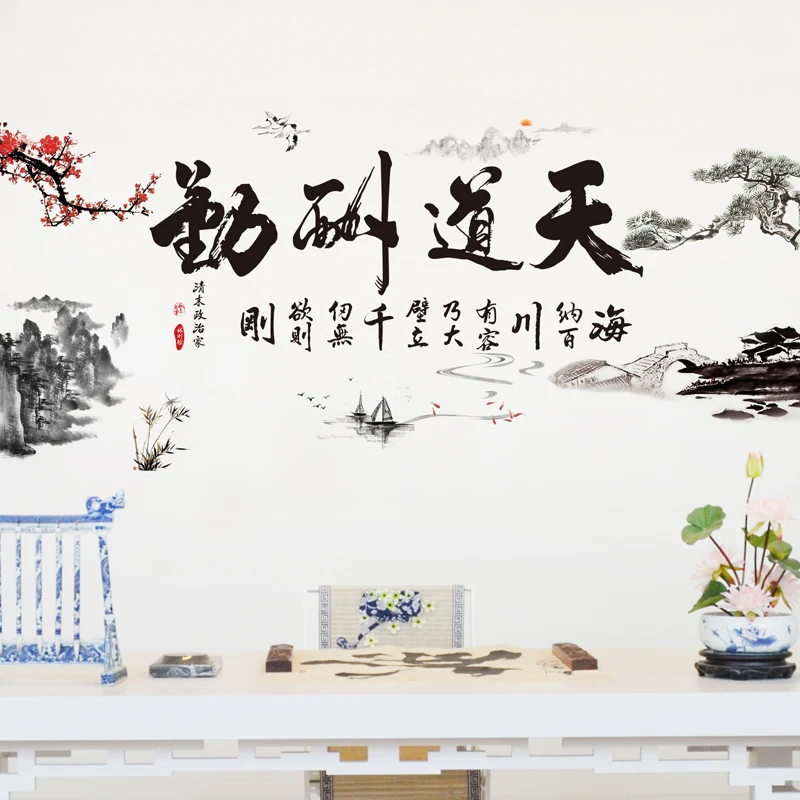 天道酬勤
海納百川有容乃大壁立千仞無欲則剛
清末政治家